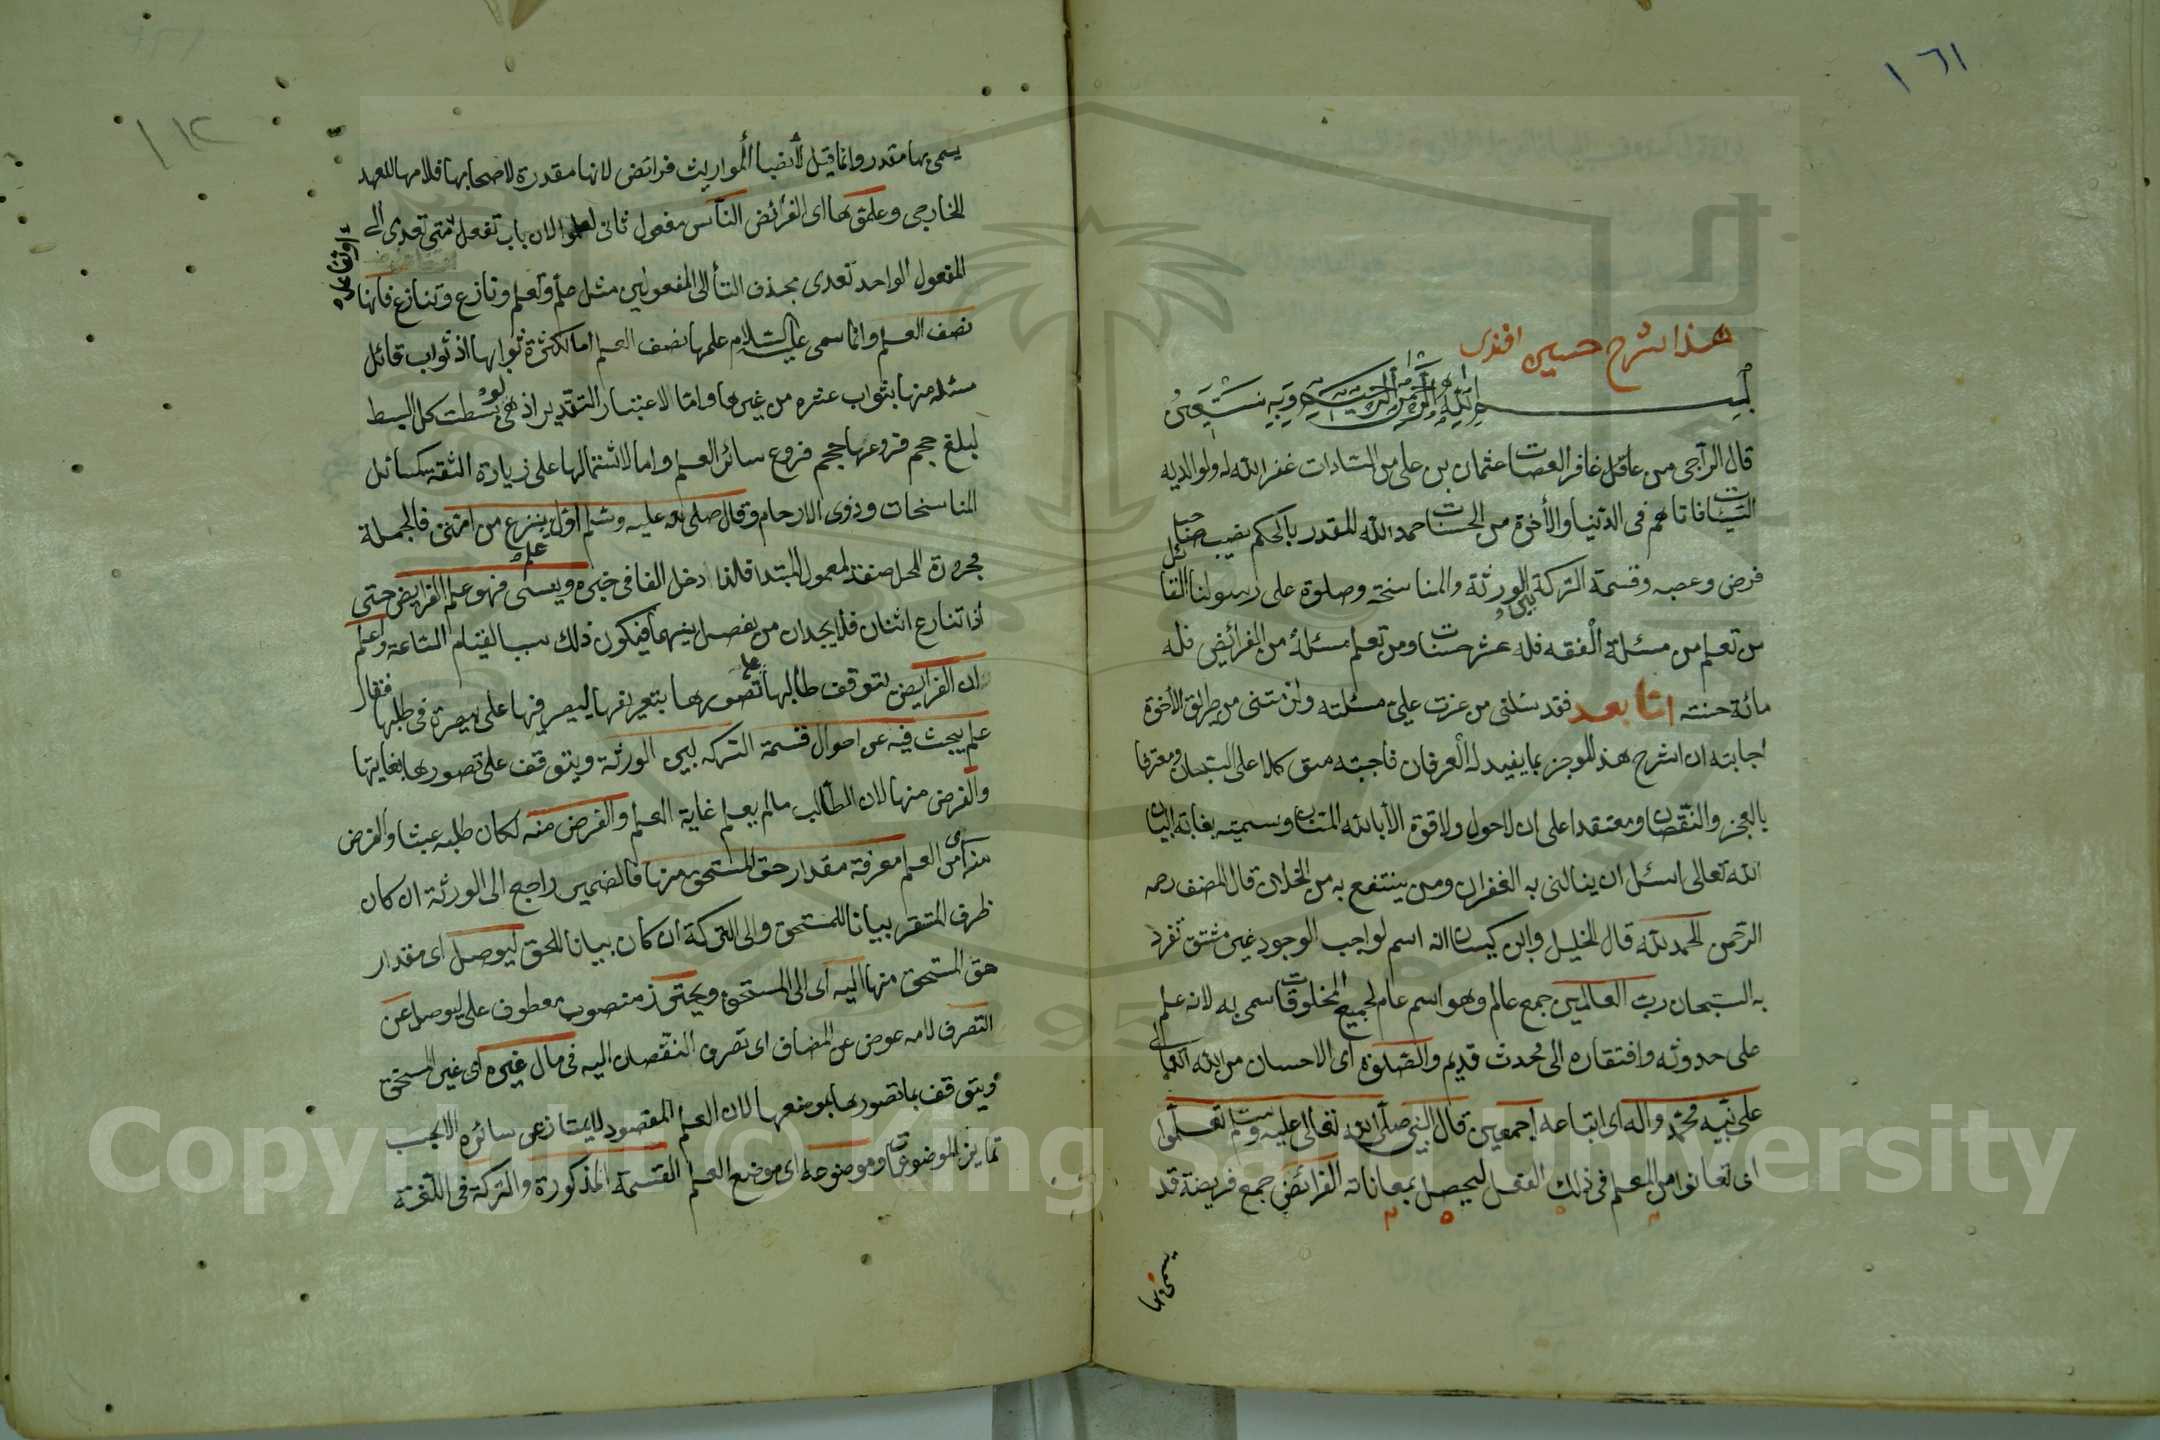 ١٦١
هذا شرح حسين افندى
بسم الله الرحمن الرحيم وبه نستعين
قال الراجى من عاقل غافر العصات عثمان بن على من السادات غفر الله له ولوالديه
السيئات فاتاهم فى الدنيا والأخرة من الحسنات احمد الله المقدر بالحكم نصيب
فرض وعصبه وقسمة التركة بين الورثة والمناسخة وصلوة على رسولنا القائل
من تعلم من مسئلة الفقه فله عشر حسنات ومن تعلم مسئلة من الفرائض فله
مائة حسنته امّا بعد فقد سئلنى من عزت علىّ مسئلته ولن متنى من طريق الأخوة
اجابته ان اشرح هذ الموجز بما يفيد له العرفان فاجبته متوكلا على السبحان ومعترفا
بالعجز والنقصان ومعتقدا على ان لاحول ولاقوة الا بالله المنان وسميته بغاية البيان
الله تعالى اسئل ان ينالنى به الغفران ومن ينتفع به من الخلان قال المصنف رحمه
الرحمن الحمد لله قال الخليل وابن كيسان انه اسم لواجب الوجود غير مشتق تفرد
به السبحان رب العالمين جمع عالم وهو اسم عام لجميع المخلوقات سمى به لانه علم
على حدوثه وافتقاره الى محدث قديم والصلوة اى الاحسان من الله تعالى
على نبيه محمد واله اى اتباعه اجمعين قال النبى صلى الله تعالى عليه وسلم تعلموا
اى تعانوا من المعلم فى ذلك الفعل ليحصل بمعاناته الفرائض جمع فريضة قد
يسمى بها
١١٢
يسمى بها مقدر وانما قيل لأنصباء المواريث فرائض لانها مقدرة لاصحابها فلامها للعهد
الخارجى وعلموها اى الفرائض الناس مفعول ثانى لعلموا لان باب تفعل متى تعدى الى
المفعول الواحد تعدى بحذف التاء الى المفعولين مثل علم وتعلم ونازع وتنازع فانها
نصف العلم وانما سمى عليه السلام علمها نصف العلم اما لكثرة ثوابها اذ ثواب قائل
مسئلة منها بثواب عشره من غيرها واما لاعتبار التقدير اذ هى لو بسطت كل البسط
لبلغ حجم فروعها حجم فروع سائر العلم واما لاشتمالها على زيادة الثقة كمسائل
المناسخات وذوى الارحام وقال صلى الله عليه وسلم اول علم ينزع من امتى فالجملة
مجرورة المحل صفة لمعمول المبتدا فلذا ادخل الفا فى خبره وينسى فهو علم الفرايض حتى
اذا تنازع اثنان فلا يجدان من يفصل بينهما فيكون ذلك سببا لقيام الساعة واعلم
ان الفرايض يتوقف طالبها على تصورها بتعريفها ليصير فيها على بصيرة فى طلبها فقال
علم يبحث فيه عن احوال قسمة التركه بين الورثة ويتوقف على تصورها بغايتها
والفرض منها لان الطالب مالم يعلم غاية العلم والفرض منه لكان طلبه عبثا والفرض
منه اى من العلم معرفة مقدار حق المستحق منها فالضمير راجع الى الورثة ان كان
ظرف المتقر بيانا للمستحق والى التركة ان كان بيانا للحق ليوصل اى مقدار
حق المستحق منها اليه اى الى المستحق ويحترز منصوب معطوف على ليوصل عن
التصرف لامه عوض عن المضاف اى تصرف النقصان اليه فى مال غيره اى غير المستحق
ويتوقف بما تصورها بموضعها لان العلم المقصود لايمتاز عن سائره الا بحسب
تمايز الموضوعات وموضوعه اى موضع العلم القسمة المذكورة والتركة فى اللغة